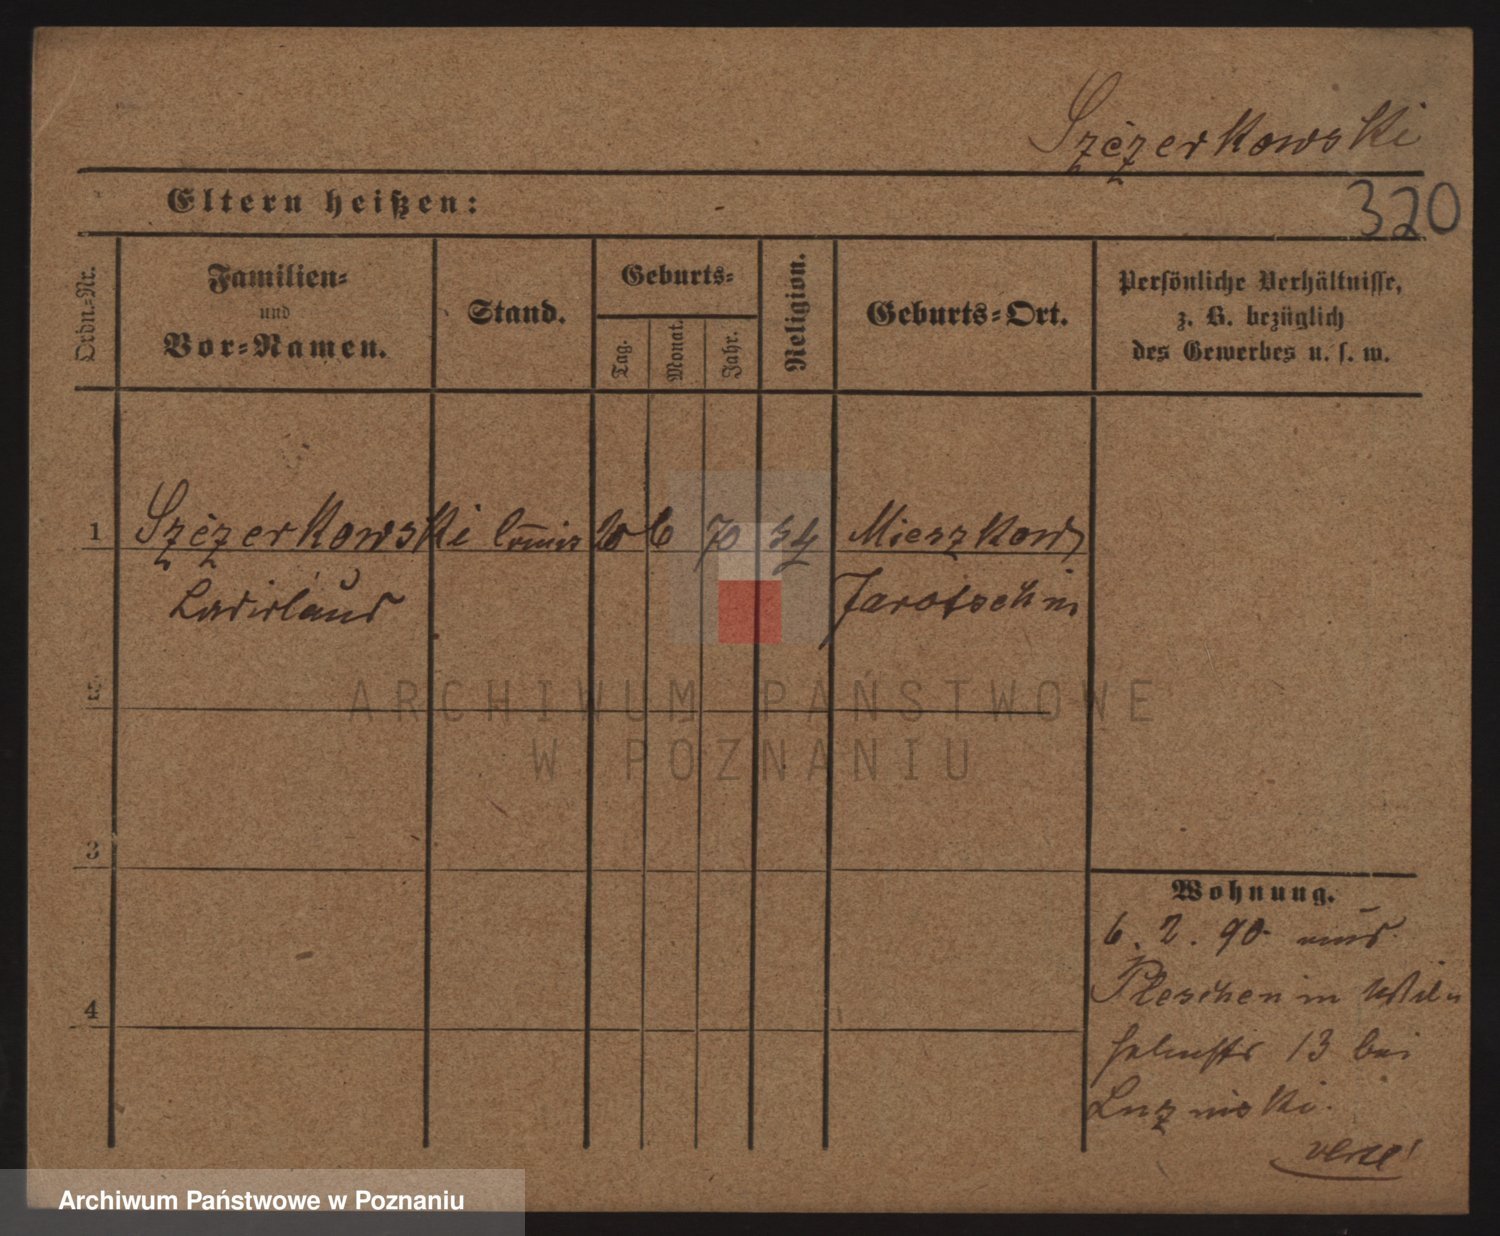 Szczerkowski
Eltern heißen: -
320
Ordn.-Nr.
Familien-
und
Vor-Namen.
Stand.
Geburts-
Tag.
Monat.
Jahr.
Religion.
Geburts-Ort.
Persönliche Verhältnisse,
z. B. bezüglich
des Gewerbes u. s. w.
1 Szczerkowski 6 70 Mieszkow
Ladislaus Jarotschin
2
ARCHIWUM PAŃSTWOWE
W POZNANIU
3
Wohnung.
6. 2. 90 aus
Pleschen in
4
13 bei
Luzinski.
Archiwum Państwowe w Poznaniu